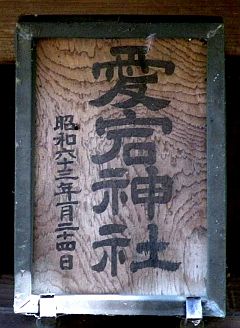 愛宕神社
昭和六十三年一月二十四日